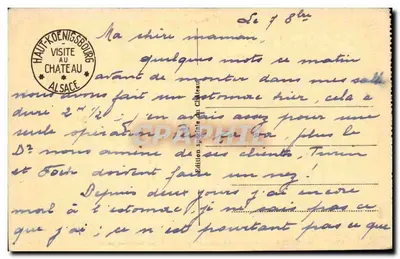 Le 7 8bre
HAUT-KOENIGSBOURG
VISITE
AU
CHATEAU
ALSACE
Ma chère maman,
quelques mots ce matin
avant de monter dans mes
nous avons fait un estomac hier, cela a
duré 2h 1/2, j'en avais assez pour une
seule opération plus le
Dr nous amène de ses clients,
et doivent faire un nez !
Depuis deux jours j'ai encore
mal à l'estomac, je ne sais pas ce
que j'ai ; ce n'est pourtant pas ce que